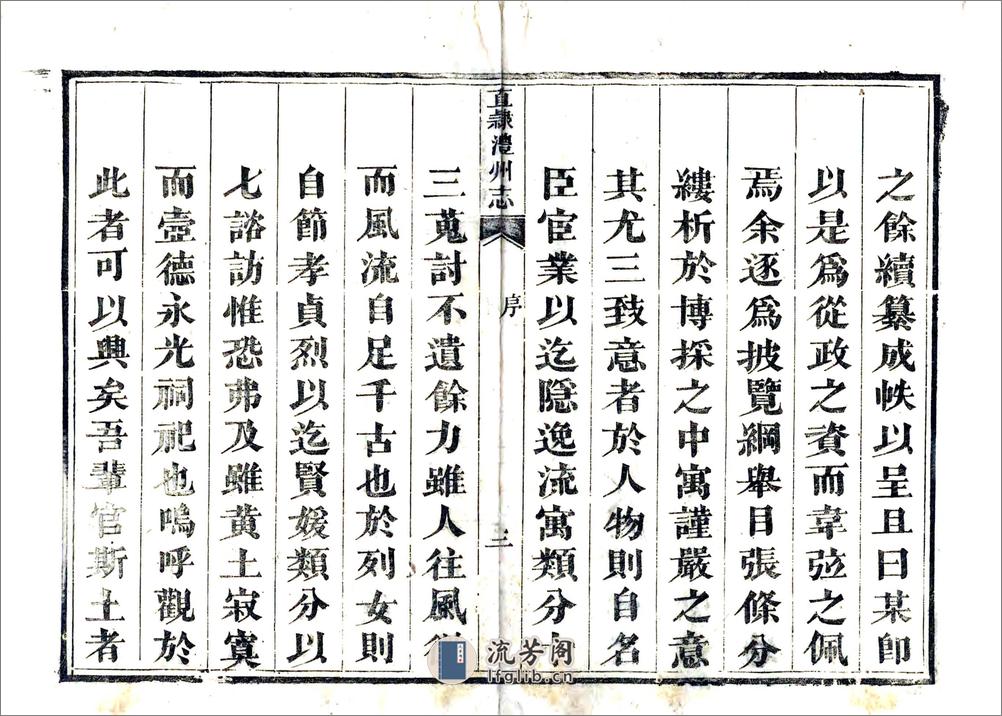 之餘續纂成帙以呈且曰某卽
以是爲從政之資而韋弦之佩
焉余逐爲披覽綱舉目張條分
縷析於博採之中寓謹嚴之意
其尤三致意者於人物則自名
臣宦業以迄隱逸流寓類分
直隸澧州志
序
三
三蒐討不遺餘力雖人往風
而風流自足千古也於列女則
自節孝貞烈以迄賢媛類分以
七諮訪惟恐弗及雖黄土寂寞
而壼德永光祠祀也嗚呼觀於
此者可以興矣吾輩官斯土者
流芳阁
lfglib.cn